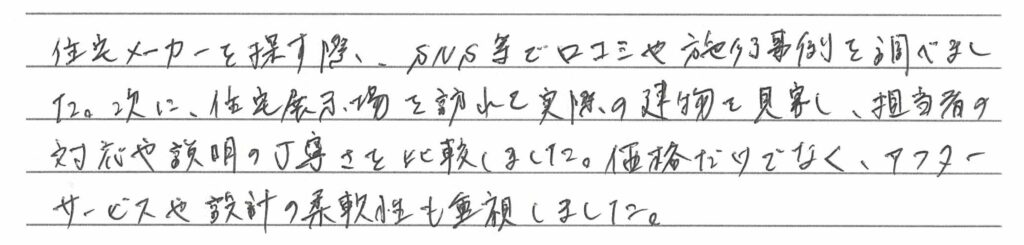 住宅メーカーを探す際、SNS等で口コミや施行事例を調べまし
た。次に、住宅展示場を訪れて実際の建物を見学し、担当者の
対応や説明の丁寧さを比較しました。価格だけでなく、アフター
サービスや設計の柔軟性も重視しました。